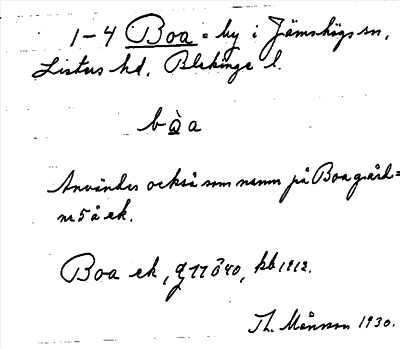 1-4 Boa = by i Jämshögs sn,
Listers hd, Blekinge l.
bòa
Användes också som namn på Boa gård =
nr 5 å ek.
Boa ek, g 11 ö 40, kb 1912.
Th. Månsson 1930.